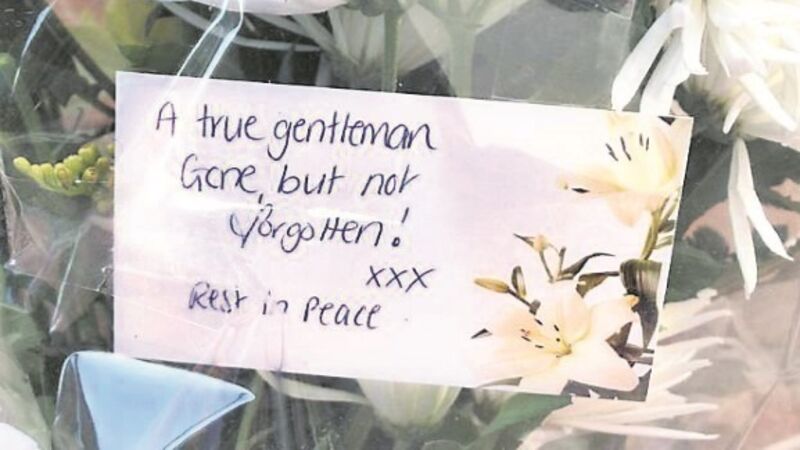 A true gentleman
Gone, but not
forgotten!
xxx
Rest in Peace